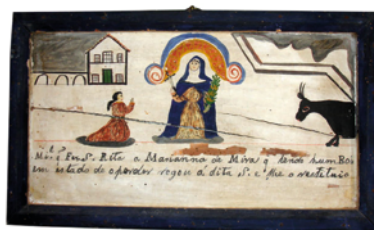 M.ce q. Fes S. Rita a Marianna de Mira q tendo hum Boi
em estado de o perder rogou a dita S. e lhe o restetuio